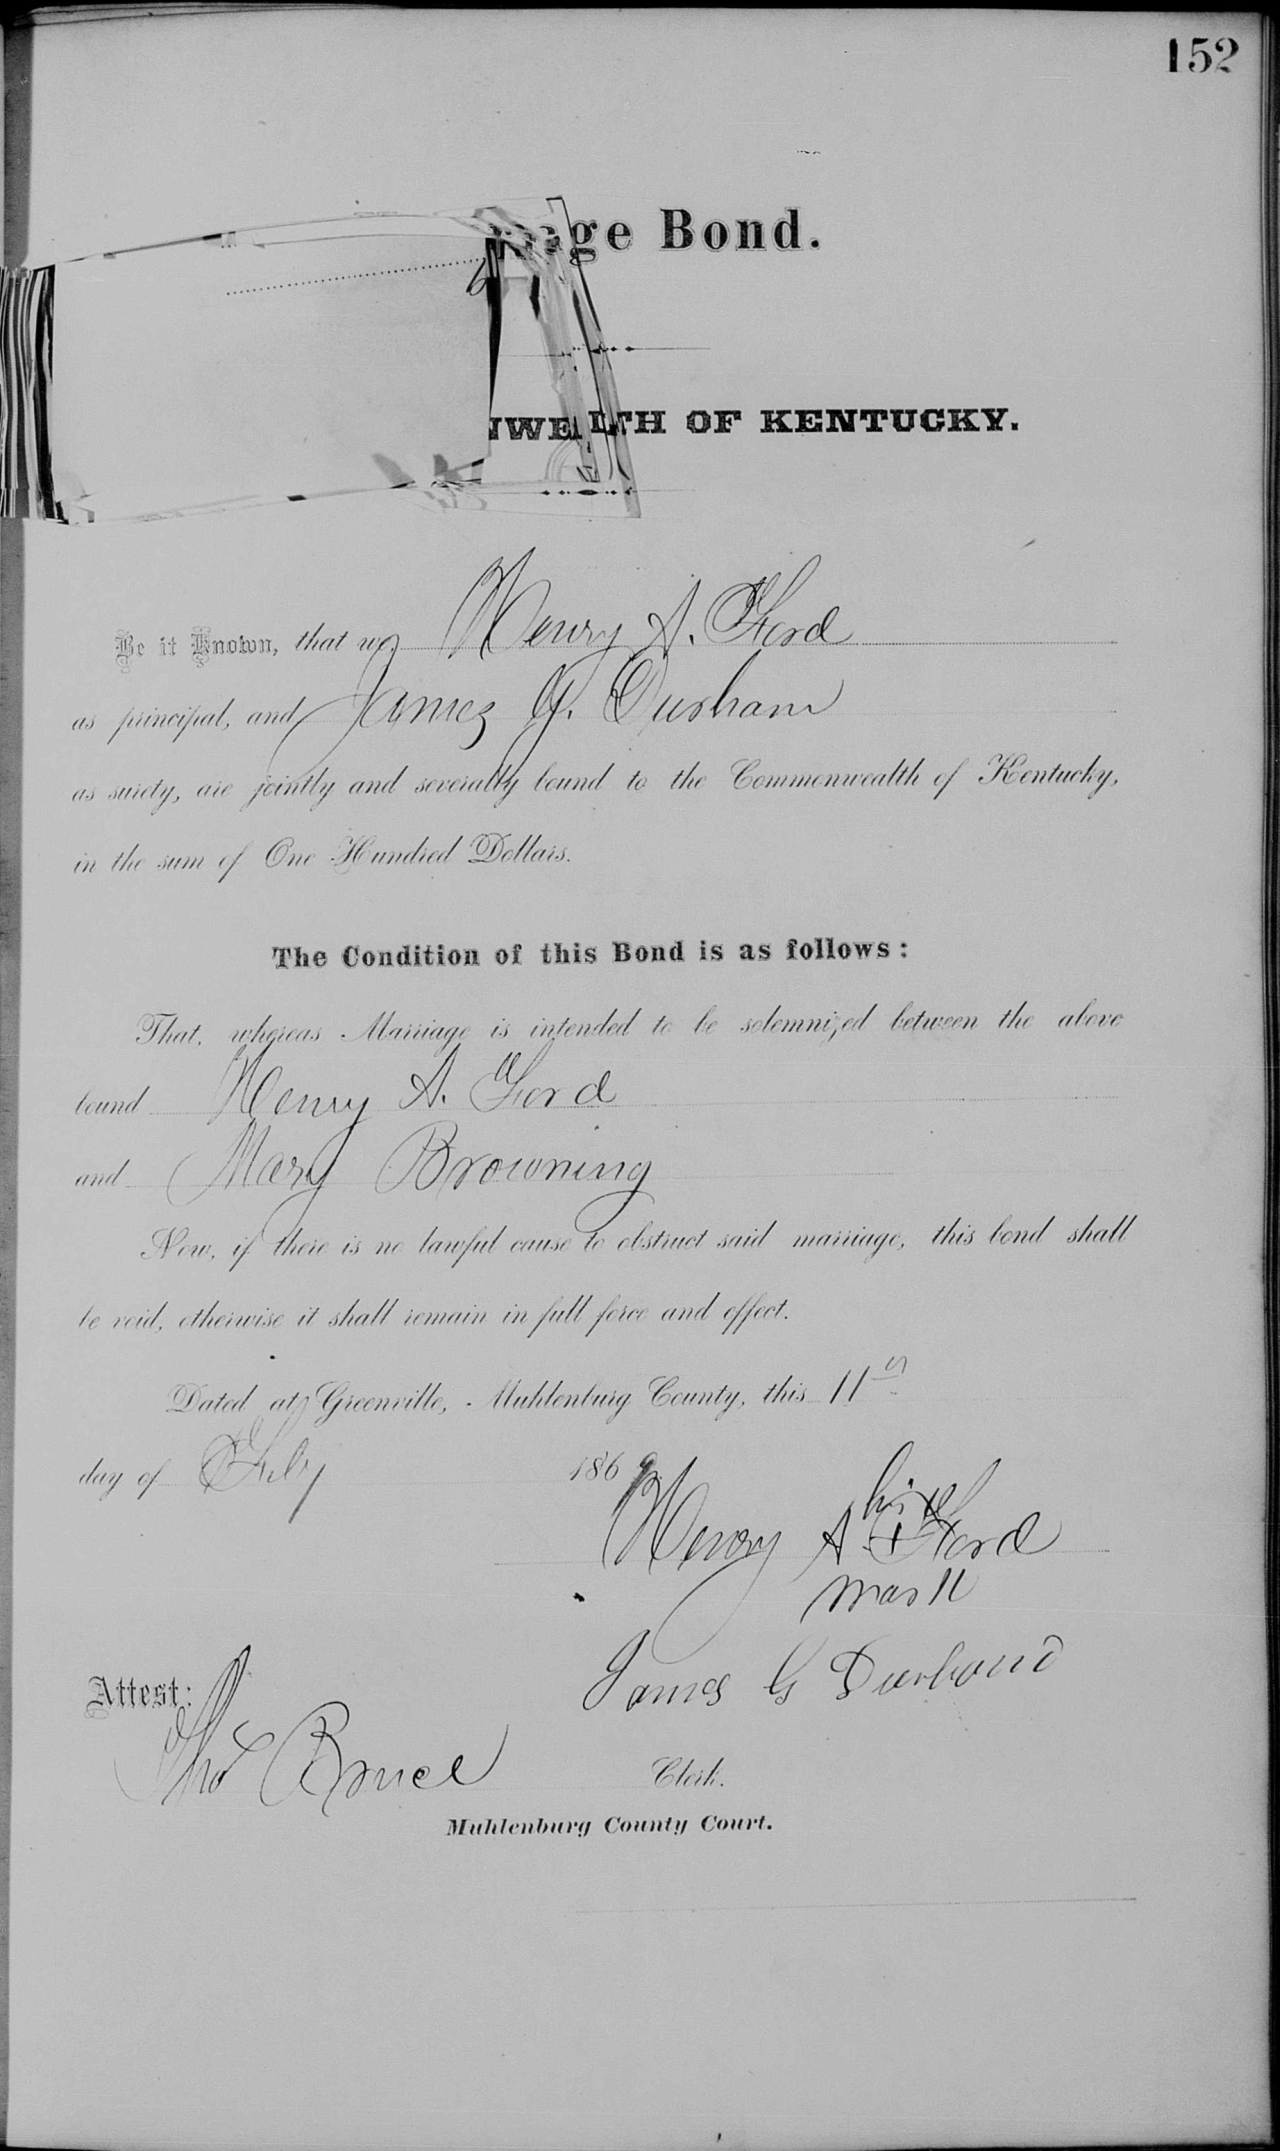 152
iage Bond.
NWEALTH OF KENTUCKY.
Be it Known, that we, Henry A. Ford
as principal, and James G. Durham
as surety, are jointly and severally bound to the Commonwealth of Kentucky,
in the sum of One Hundred Dollars.
The Condition of this Bond is as follows:
That, whereas Marriage is intended to be solemnized between the above
bound Henry A. Ford
and Mary Browning
Now, if there is no lawful cause to obstruct said marriage, this bond shall
be void, otherwise it shall remain in full force and effect.
Dated at Greenville, Muhlenburg County, this 11th
day of Feby 1869
his
Henry A. + Ford
mark
James G Durham
Attest:
Tho Bruce Clerk.
Muhlenburg County Court.